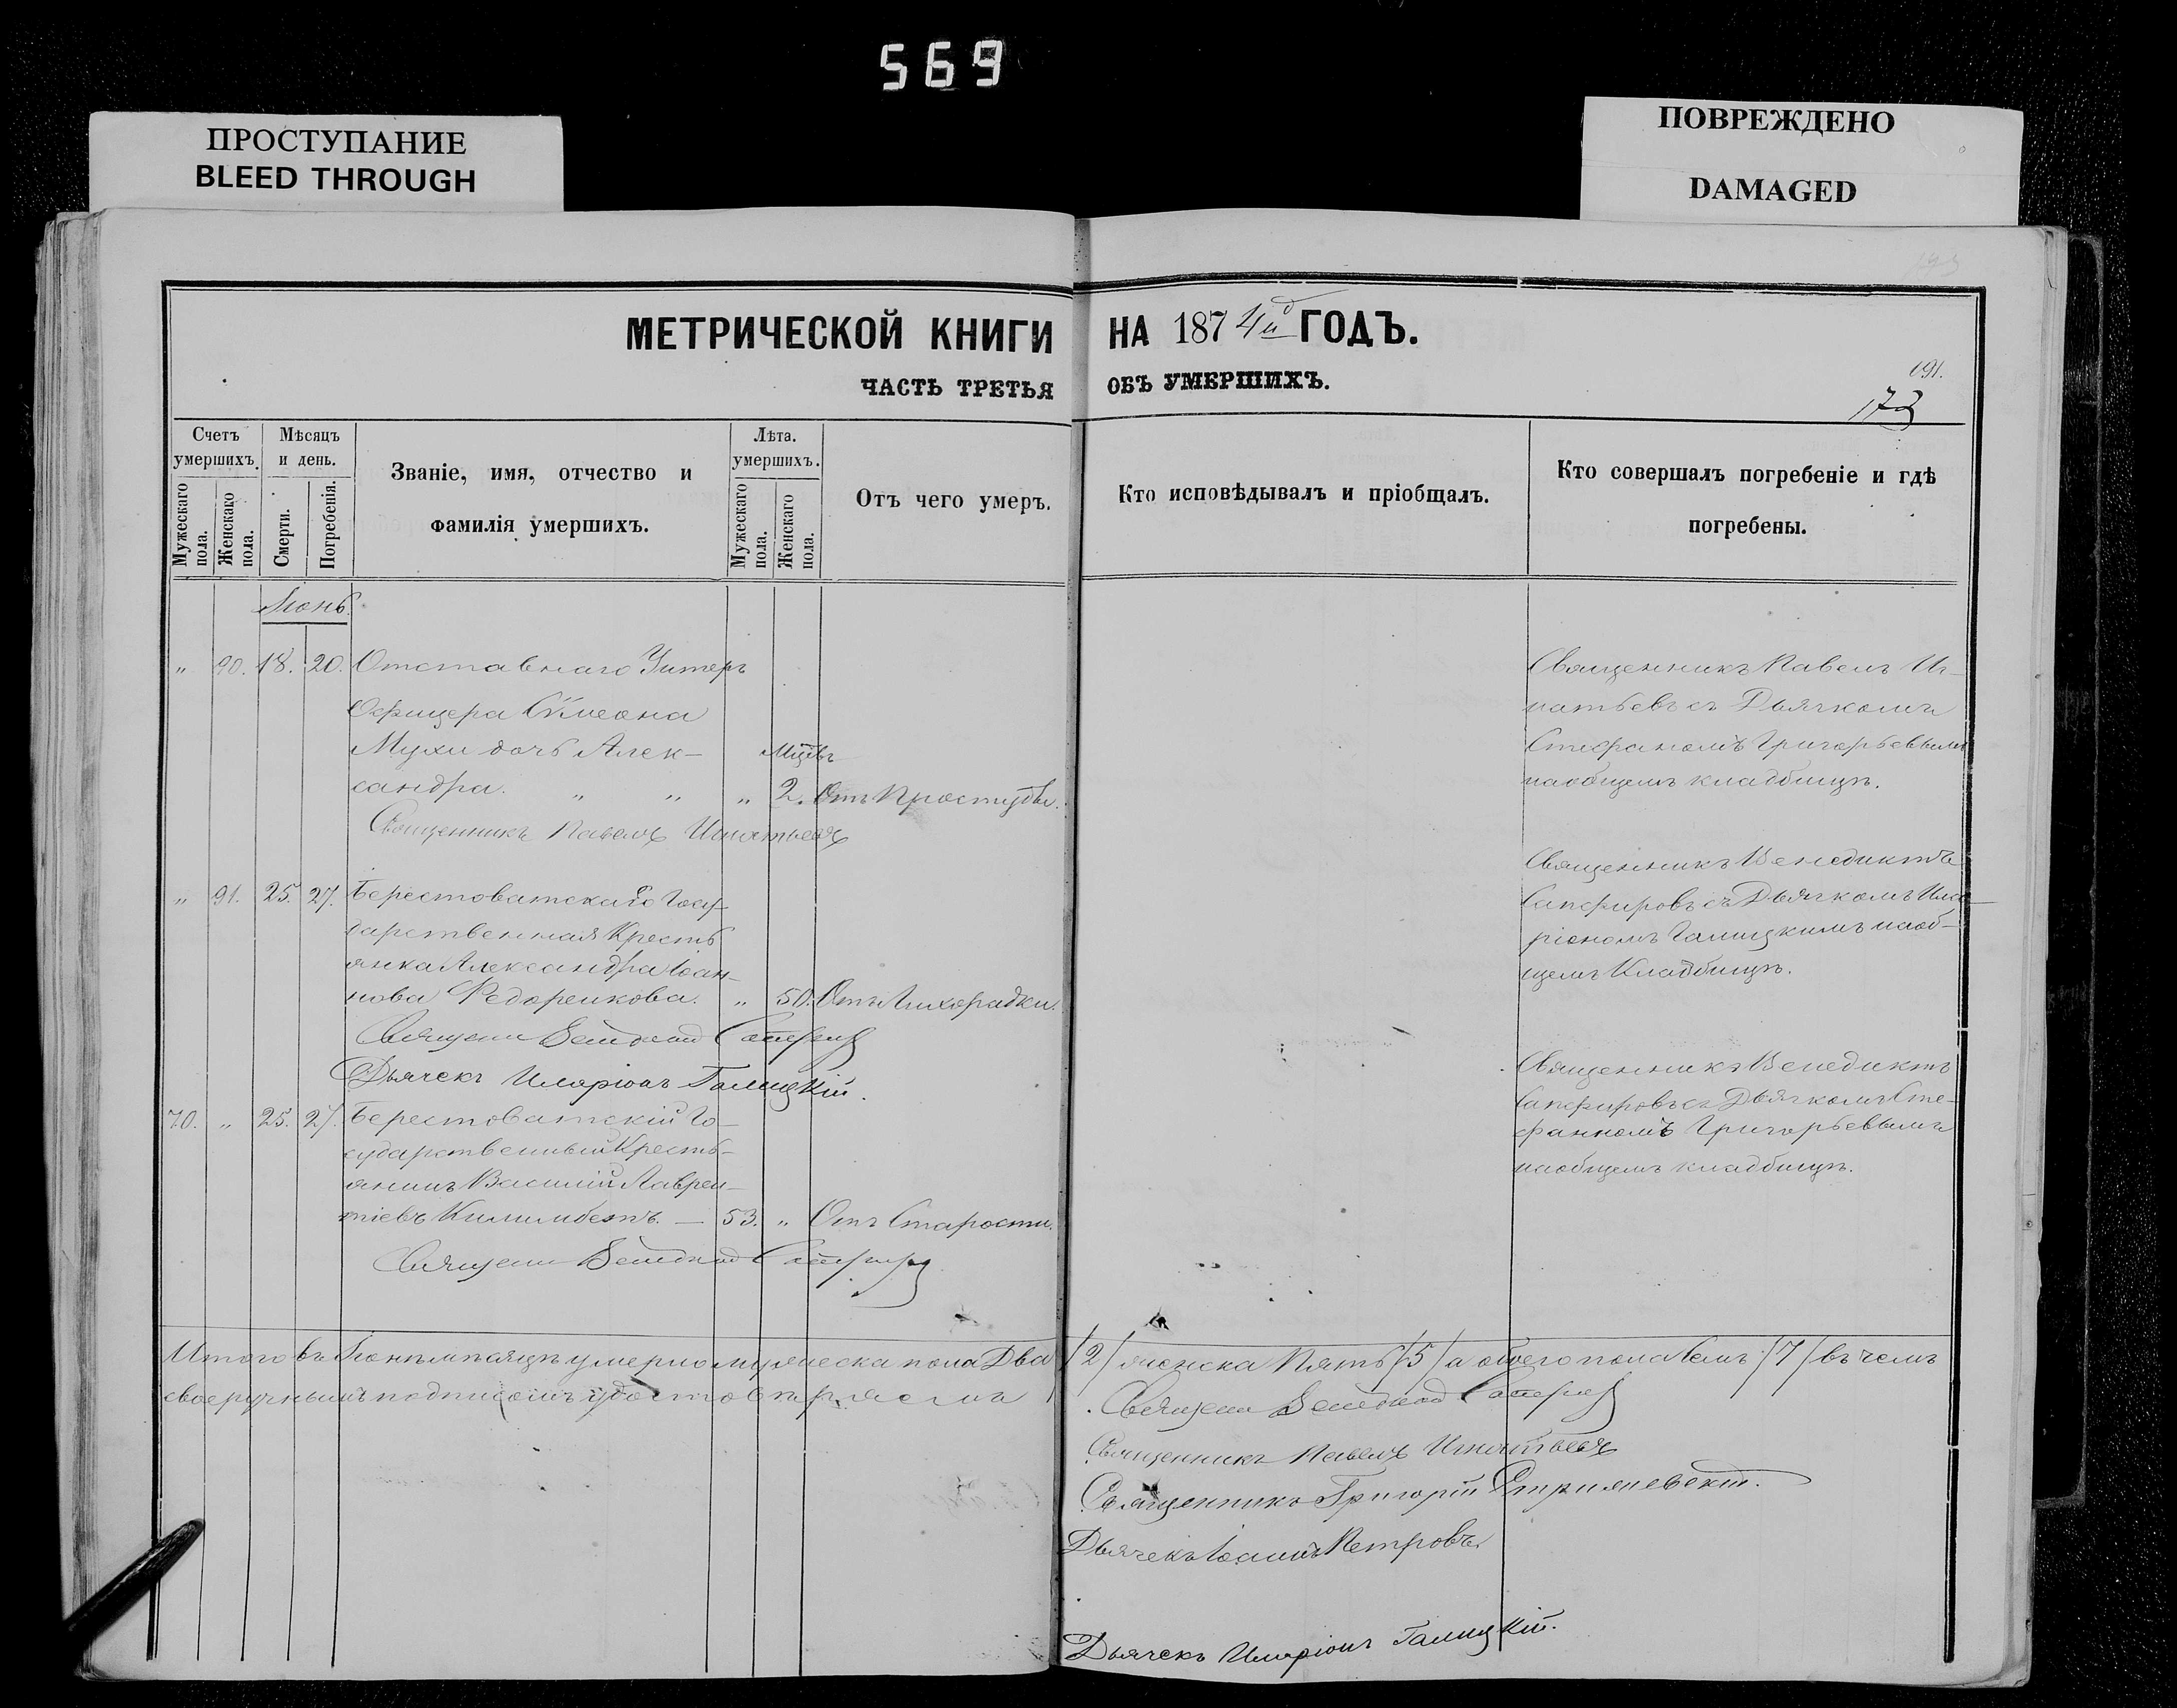 569
ПРОСТУПАНИЕ
BLEED THROUGH
ПОВРЕЖДЕНО
DAMAGED
МЕТРИЧЕСКОЙ КНИГИ НА 1874й ГОДЪ.
ЧАСТЬ ТРЕТЬЯ ОБЪ УМЕРШИХЪ.
191.
173
Счетъ умершихъ.
Мужескаго пола.
Женскаго пола.
Мѣсяцъ и день.
Смерти.
Погребенія.
Званіе, имя, отчество и
фамилія умершихъ.
Лѣта. умершихъ.
Мужескаго пола.
Женскаго пола.
Отъ чего умеръ.
Кто исповѣдывалъ и пріобщалъ.
Кто совершалъ погребеніе и гдѣ
погребены.
Іюнь.
" 90. 18. 20. Отставнаго Унтеръ
Офицера Сѵмеона
Мухи дочь Алек-
сандра. " " " 2. Отъ Простуды.
Священникъ Павелъ Игнатьевъ
Священникъ Павелъ Иг-
натьевъ съ Дьячкомъ
Стефаномъ Григорьевымъ
наобщемъ кладбищѣ.
" 91. 25. 27. Берестоватскаго Госу-
дарственная Кресть
янка Александра Іоан-
нова Федоренкова. " 50. Отъ Лихорадки.
Дьячекъ Иларіонъ Галицкій.
Священникъ Венедиктъ
Сапфировъ съ Дьячкомъ Ила-
ріономъ Галицкимъ наоб-
щемъ Кладбищѣ.
70. " 25. 27. Берестоватскій Го-
сударственный Кресть-
янинъ Василій Лаврен-
тіевъ Килимбетъ. — 53. " Отъ Старости.
Священникъ Венедиктъ
Сапфировъ съ Дьячкомъ Сте-
фанномъ Григорьевымъ
наобщемъ кладбищѣ.
Итого въ Іюнѣ мѣсяцѣ умерло мужеска пола Два /2/ женска Пять /5/ а обоего пола Семь /7/ въ чемъ
своеручнымъ подписомъ удостовѣряемъ
Священникъ Павелъ Игнатьевъ
Священникъ Григорій
Дьячекъ Іоаннъ Петровъ
Дьячекъ Иларіонъ Галицкій.